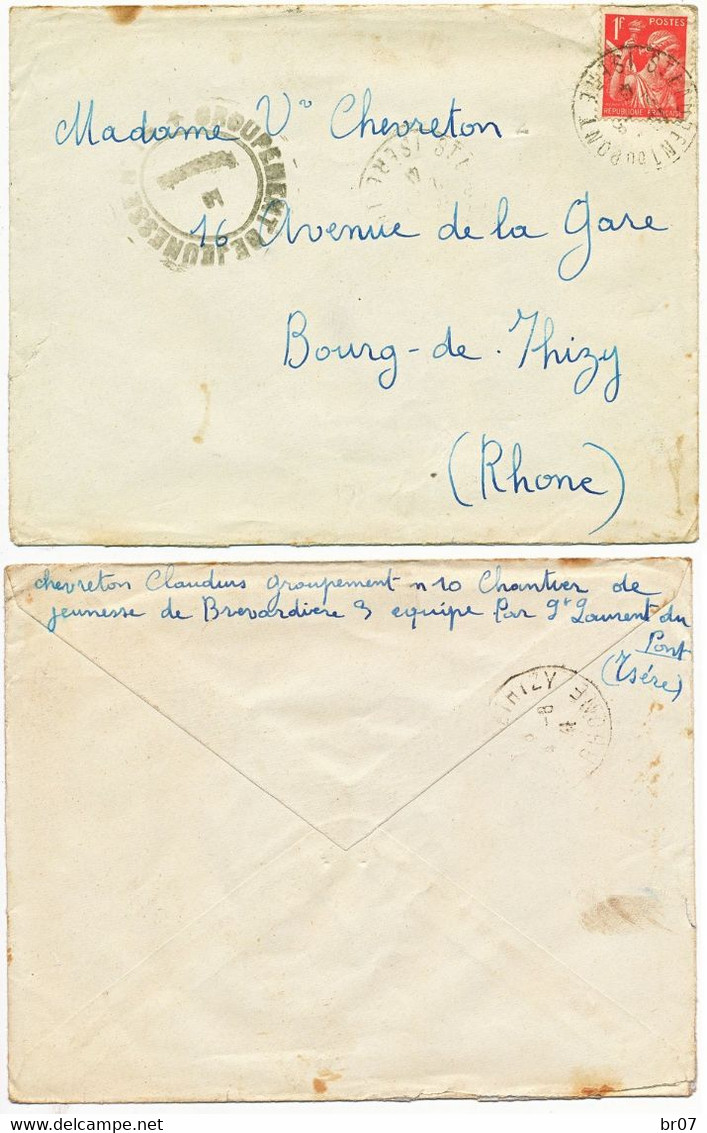 1F POSTES
REPUBLIQUE FRANÇAISE
ST LAURENT DU PONT ISERE
Madame Vve Chevreton
GROUPEMENT DE JEUNESSE N
ISERE
16 Avenue de la Gare
Bourg-de-Thizy
(Rhone)
chevreton Claudius groupement n 10 Chantier de
jeunesse de Brevardiere 3 equipe Par St Laurent du
Pont
(Isére)
THIZY RHONE
br07